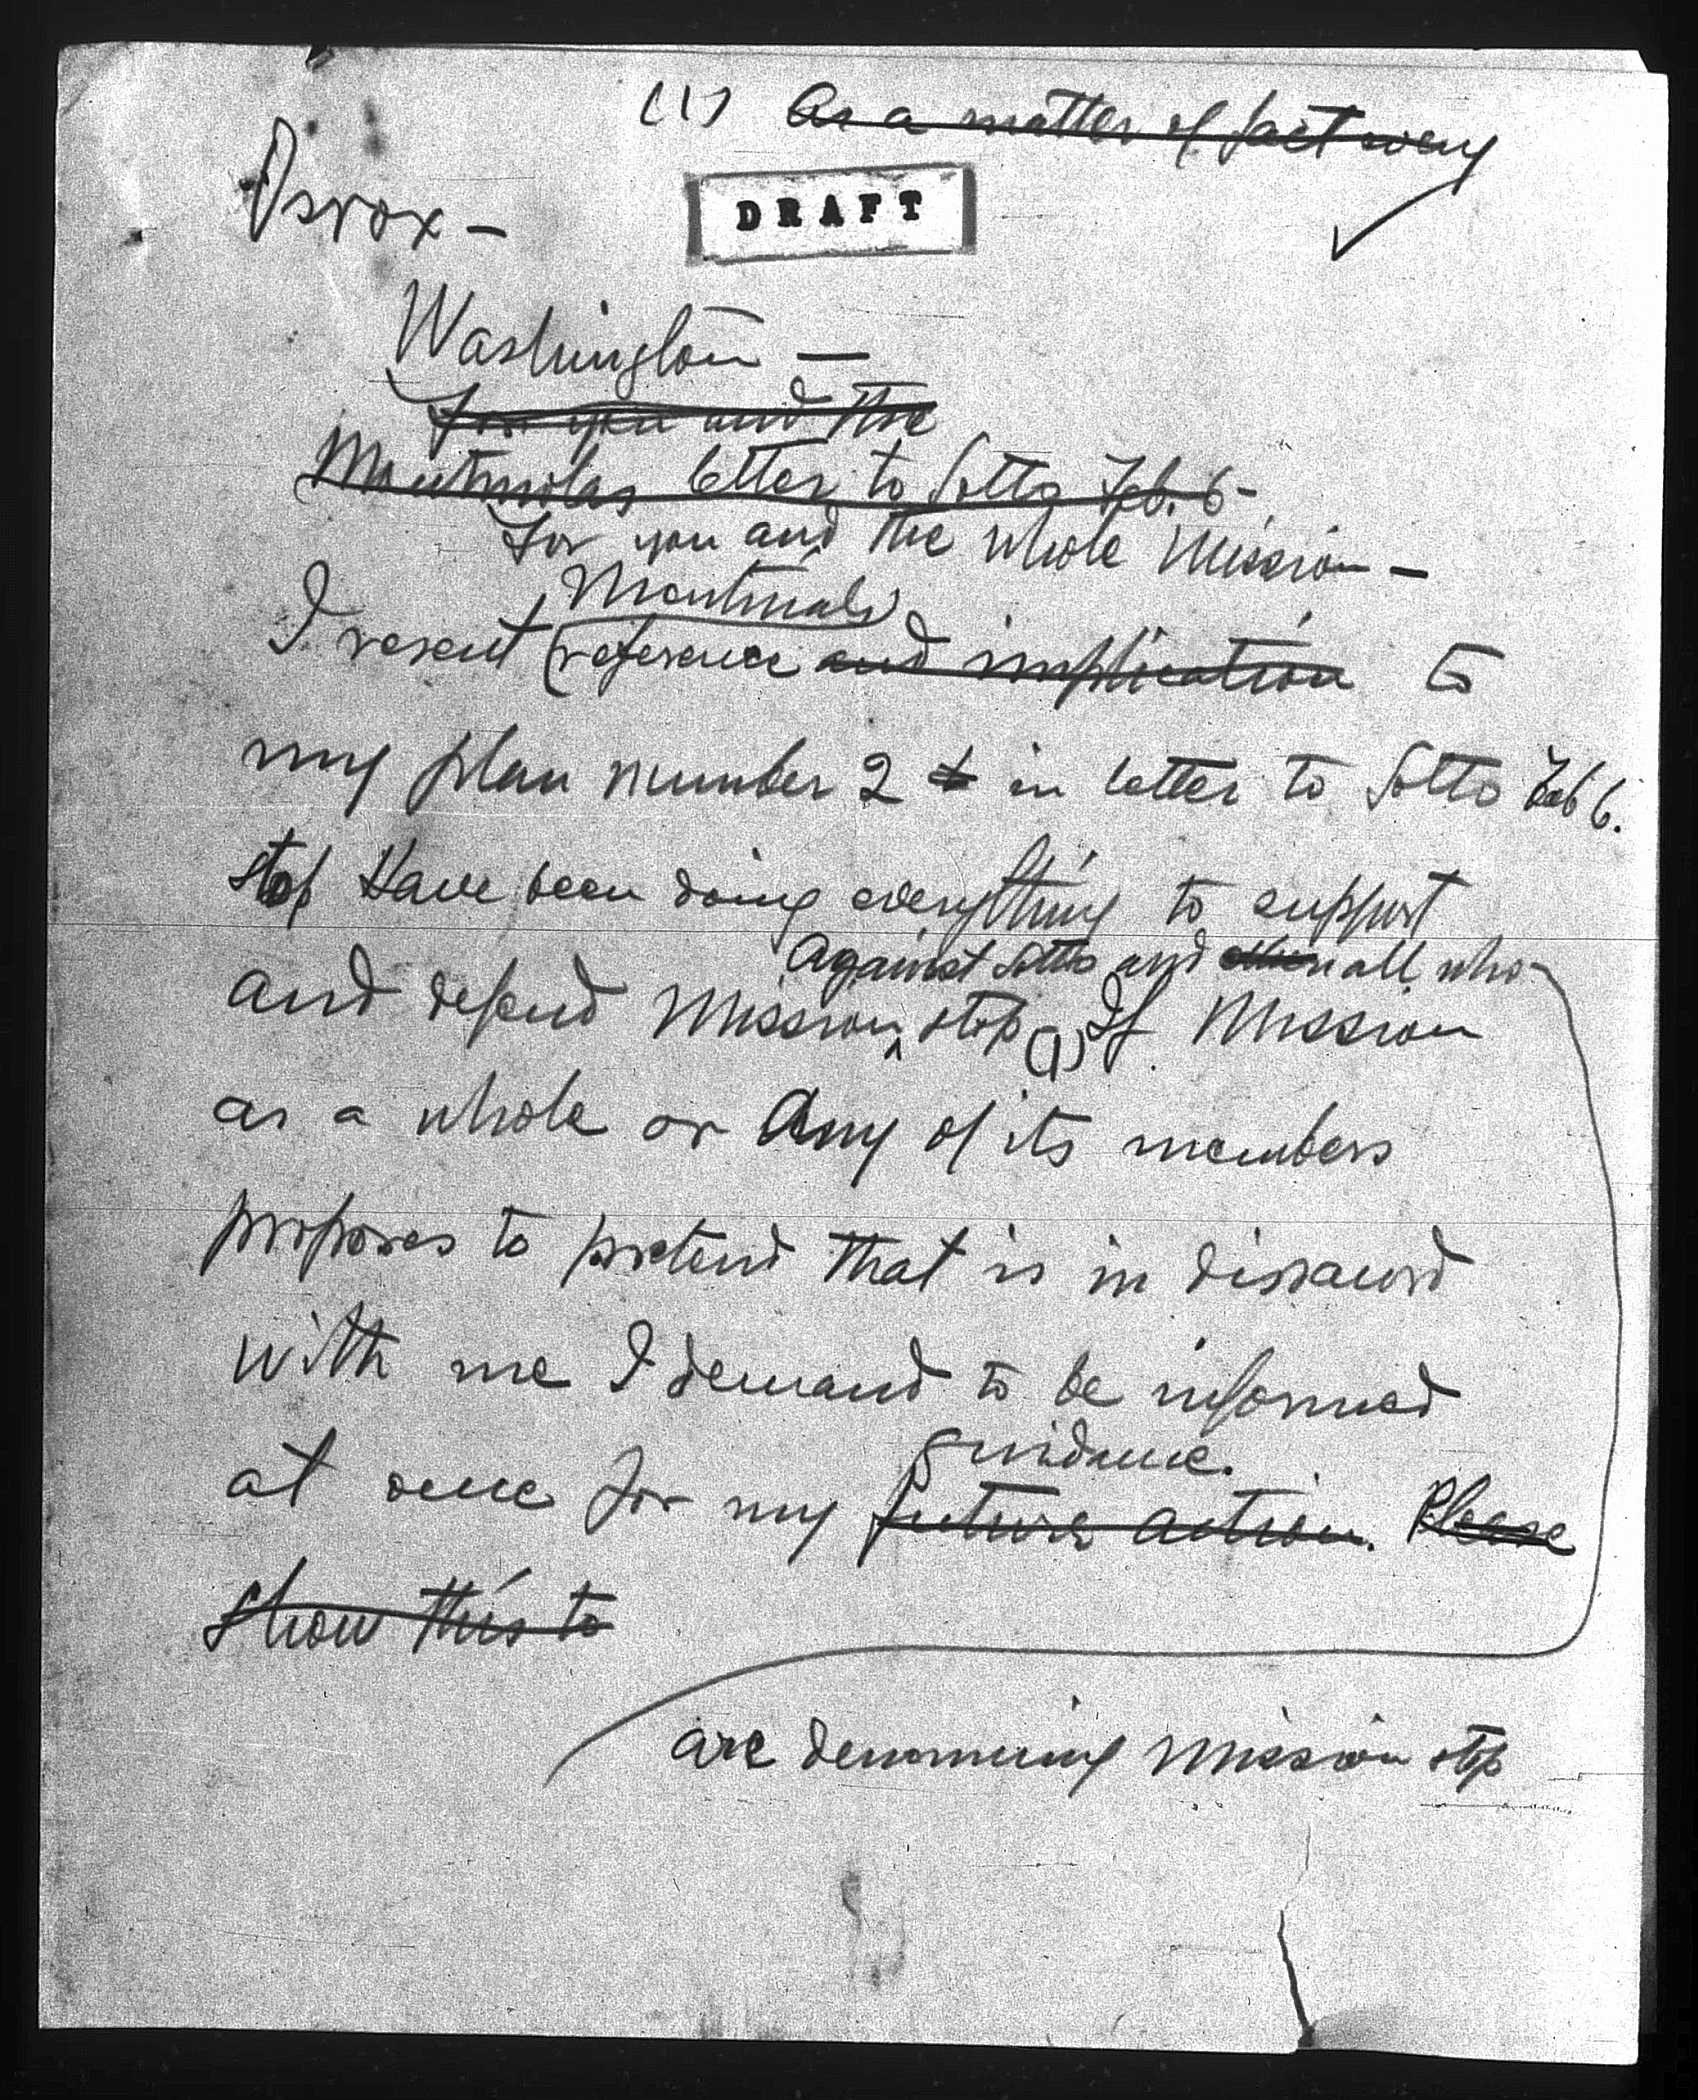 (1) As a matter of fact every
Osrox -
DRAFT
Washington —
For you and the
Montinolas letter to Sotto Feb. 6 -
For you and the whole Mission -
Montinola
I resent reference and implication to
my plan number 2 in letter to Sotto Feb 6.
stop Have been doing everything to support
against Sotto and all who
and defend Mission stop (1) If Mission
as a whole or any of its members
proposes to pretend that is in disaccord
with me I demand to be informed
guidance.
at once for my future action. Please
show this to
are denouncing Mission stop